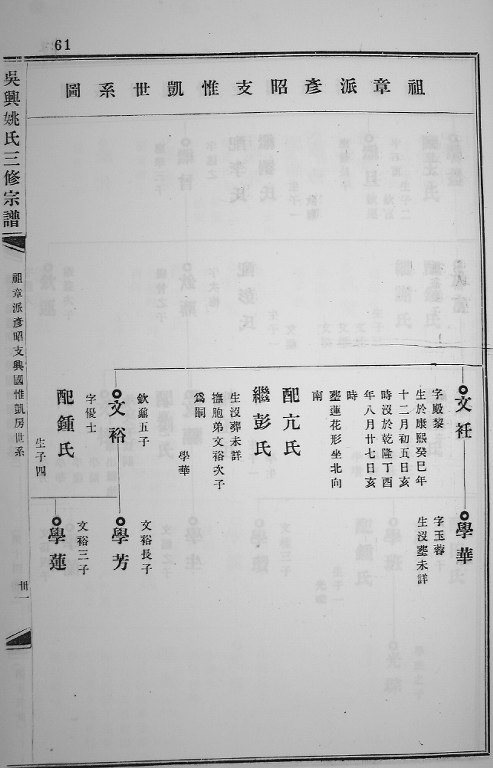 61
祖章派彥昭支惟凱世系圖
文衽
字殿黎
生於康熙癸巳年
十二月初五日亥
時沒於乾隆丁酉
年八月廿七日亥
時
葬蓮花形坐北向
南
配亢氏
繼彭氏
生沒葬未詳
撫胞弟文裕次子
為嗣
學華
欽鼐五子
文裕
字優士
配鍾氏
生子四
學華
字玉蓉
生沒葬未詳
文裕長子
學芳
文裕三子
學蓮
吳興姚氏三修宗譜
祖章派彥昭支興國惟凱房世系
卅一